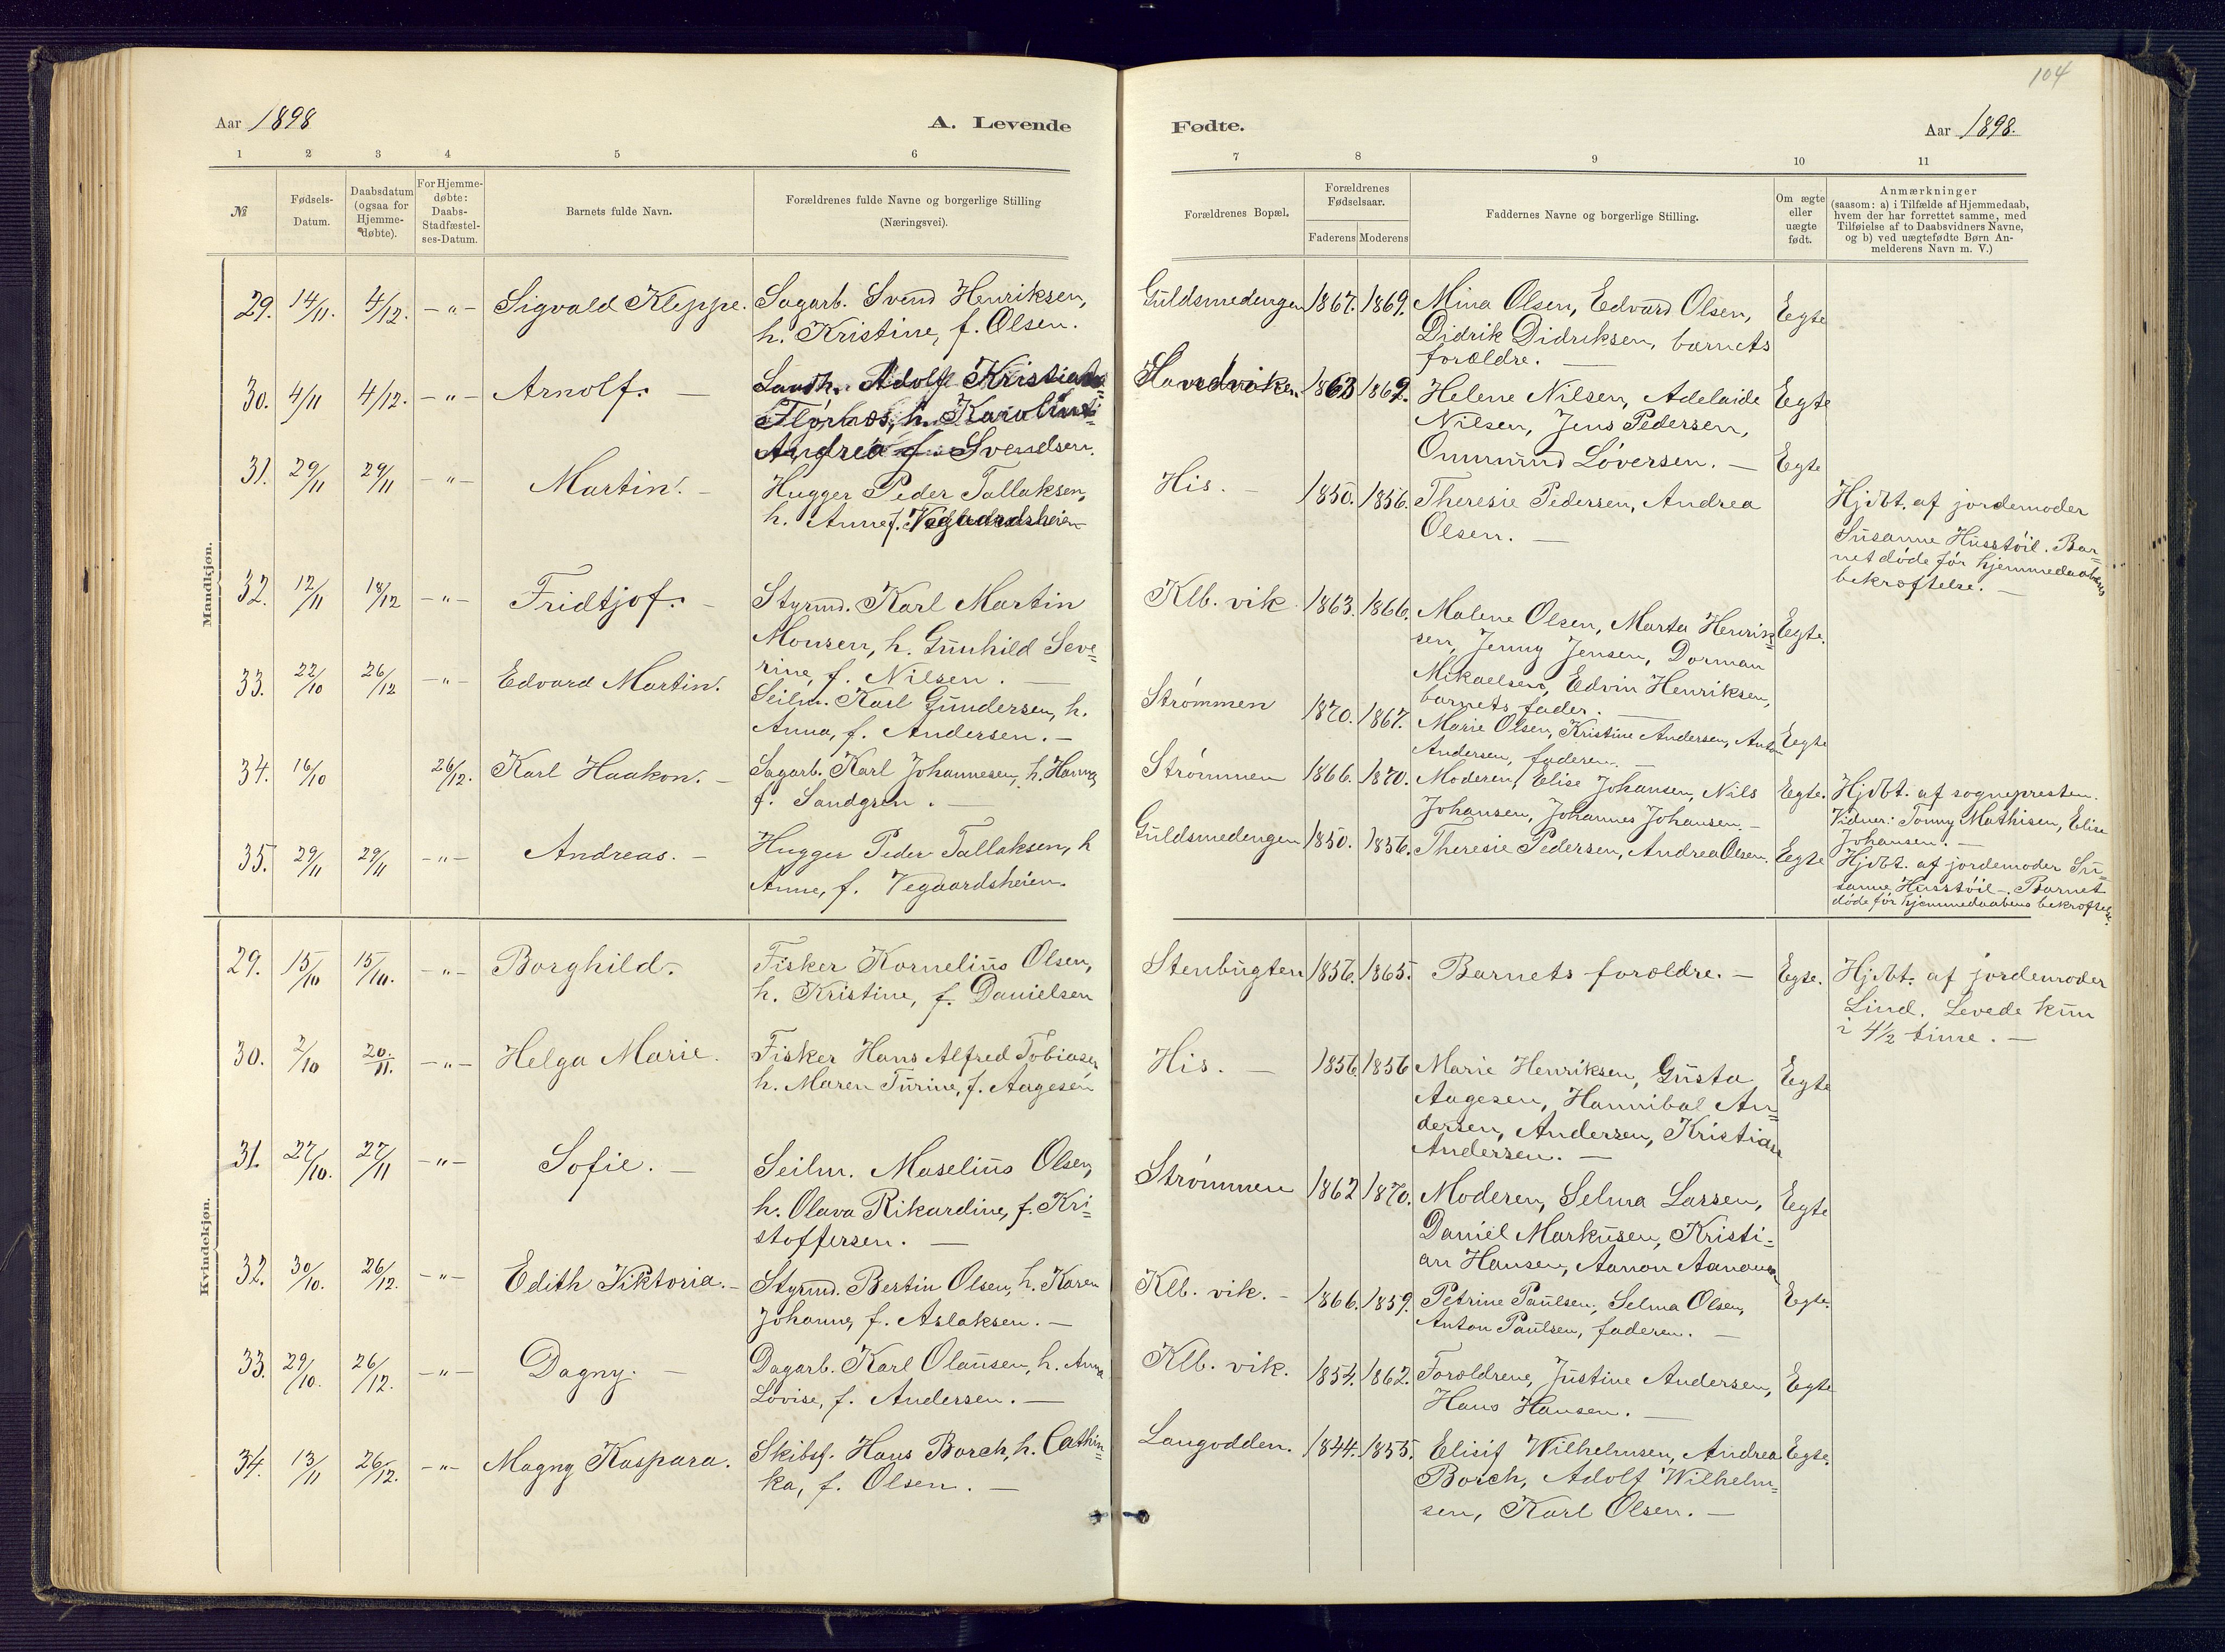 104
Aar 1898
A. Levende
Fødte.
Aar 1898.
1 2 3 4 5 6
7 8 9 10 11
№
Fødsels-
Datum.
Daabsdatum
(ogsaa for
Hjemme-
døbte).
For Hjemme-
døbte:
Daabs-
Stadfæstel-
ses-Datum.
Barnets fulde Navn.
Forældrenes fulde Navne og borgerlige Stilling
(Næringsvei).
Forældrenes Bopæl.
Forældrenes
Fødselsaar.
Faderens Moderens
Faddernes Navne og borgerlige Stilling.
Om ægte
eller
uægte
født.
Anmærkninger
(saasom: a) i Tilfælde af Hjemmedaab,
hvem der har forrettet samme, med
Tilføielse af to Daabsvidners Navne,
og b) ved uægtefødte Børn An-
melderens Navn m. V.)
Mandkjøn.
29. 14/11. 4/12. -"- Sigvald Kleppe. Sagarb. Svend Henriksen,
h. Kristine, f. Olsen.
Guldsmedengen 1867. 1869. Mina Olsen, Edvard Olsen, Egte
Didrik Didriksen, barnets
forældre. —
30. 4/11 4/12. -"- Arnolf. — Adolf
h.
Andrea f. Svendsen.
1863 1869. Helene Nilsen, Adelaide Egte
Nilsen, Jens Pedersen,
Ommund Løversen. —
31. 29/11 29/11 -"- Martin. — Hugger Peder Tallaksen,
h. Anne f. Vegaardsheien
His. — 1850. 1856. Theresie Pedersen, Andrea Egte
Olsen. —
Hjdbt. af jordemoder
Susanne Husstøil. Bar-
net døde før hjemmedaabens
bekræftelse. —
32. 12/11 18/12 -"- Fridtjof. — Styrmd. Karl Martin
Monsen, h. Gunhild Seve-
rine, f. Nilsen. —
Klb. vik 1863. 1866. Malene Olsen, Marta Henrik- Egte.
sen, Jenny Jensen, Dorman
Mikaelsen, Edvin Henriksen,
barnets fader. —
33. 22/10 26/12 -"- Edvard Martin. Seilm. Karl Gundersen, h.
Anna, f. Andersen. —
Strømmen 1870. 1867. Marie Olsen, Kristine Andersen, Anton Egte
Andersen, faderen. —
34. 16/10 26/12. Karl Haakon. — Sagarb. Karl Johannesen, h. Hanna
f. Sandgren. —
Strømmen 1866. 1870. Moderen, Elise Johansen, Nils Egte.
Johansen, Johannes Johansen. —
Hjdbt. af sognepresten.
Vidner: Tonny Mathisen, Elise
Johansen. —
35. 29/11 29/11 -"- Andreas. — Hugger Peder Tallaksen, h
Anne, f. Vegaardsheien.
Guldsmedengen 1850. 1856. Theresie Pedersen, Andrea Olsen. Egte
Hjdbt. af jordemoder Su-
sanne Husstøil —. Barnet
døde før hjemmedaabens bekræftelse.
Kvindekjøn.
29. 15/10 15/10. -"- Borghild. Fisker Kornelius Olsen,
h. Kristine, f. Danielsen
Stenbugten 1856. 1865. Barnets forældre. — Egte.
Hjdbt. af jordemoder
Lind. Levede kun
i 4½ time. —
30. 2/10 20./11. -"- Helga Marie. Fisker Hans Alfred Tobiasen
h. Maren Turine, f. Aagesen
His. — 1856. 1856 Marie Henriksen, Gusta Egte
Aagesen, Hannibal An-
dersen, Andersen, Kristian
Andersen. —
31. 27/10. 27/11 -"- Sofie. — Seilm. Maselius Olsen,
h. Olava Rikardine, f. Kri-
stoffersen. —
Strømmen 1862 1870. Moderen, Selma Larsen, Egte
Daniel Markusen, Kristi-
an Hansen, Aanon Aanonsen
32. 30/10. 26/12. -"- Edith Viktoria. — Styrmd. Bertin Olsen, h. Karen
Johanne, f. Aslaksen. —
Klb. vik. — 1866. 1859. Petrine Paulsen, Selma Olsen, Egte.
Anton Paulsen, faderen. —
33. 29/10. 26/12. -"- Dagny. — Dagarb. Karl Olausen, h. Anna
Lovise, f. Andersen. —
Klb. vik. 1854. 1862. Forældrene, Justine Andersen, Egte
Hans Hansen. —
34. 13/11 26/12. -"- Magny Kaspara. Skibsf. Hans Borch, h. Cathin-
ka, f. Olsen. —
Langodden. 1844. 1855. Elisif Wilhelmsen, Andrea Egte.
Borch, Adolf Wilhelm-
sen, Karl Olsen. —